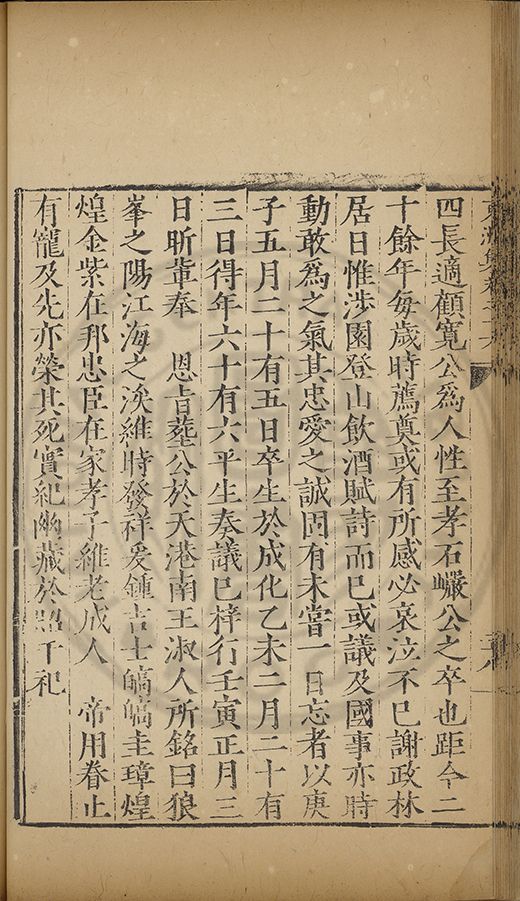 四長適顧寬公爲人性至孝石巖公之卒也距今二
十餘年每歲時薦奠或有所感必哀泣不已謝政林
居日惟涉園登山飲酒賦詩而已或議及國事亦時
動敢爲之氣其忠愛之誠固有未嘗一日忘者以庚
子五月二十有五日卒生於成化乙未二月二十有
三日得年六十有六平生奏議已梓行壬寅正月三
日昕輩奉　恩旨葬公於天港南王淑人所銘曰狼
峯之陽江海之涘維時發祥爰鍾吉士皜皜圭璋煌
煌金紫在邦忠臣在家孝子維老成人　帝用眷止
有寵及先亦榮其死實紀幽藏於昭千祀